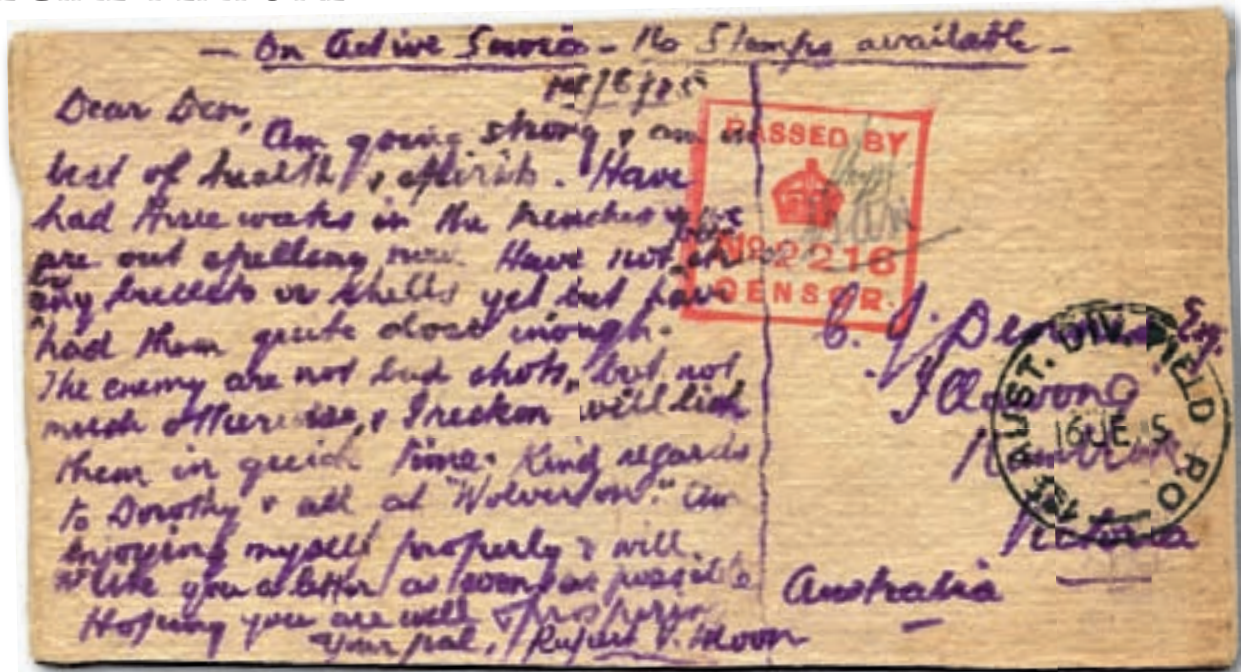 — On Active Service — No Stamps available —
Dear Den,
Am going strong & am in
best of health & spirits. Have
had three weeks in the trenches & we
are out spelling now. Have not
any bullets or shells yet but have
had them quite close enough.
The enemy are not bad shots, but not
much otherwise, & I reckon will lick
them in quick time. Kind regards
to Dorothy & all at "Wolverton." Am
enjoying myself properly & will
write you a letter as soon as possible
Hoping you are well &
Your pal, Rupert V. Moon
PASSED BY
No 2216
CENSOR.
C. J. Esq.
Illawong
Victoria
Australia
1ST AUST. DIV. FIELD P.O.
16 JE 15